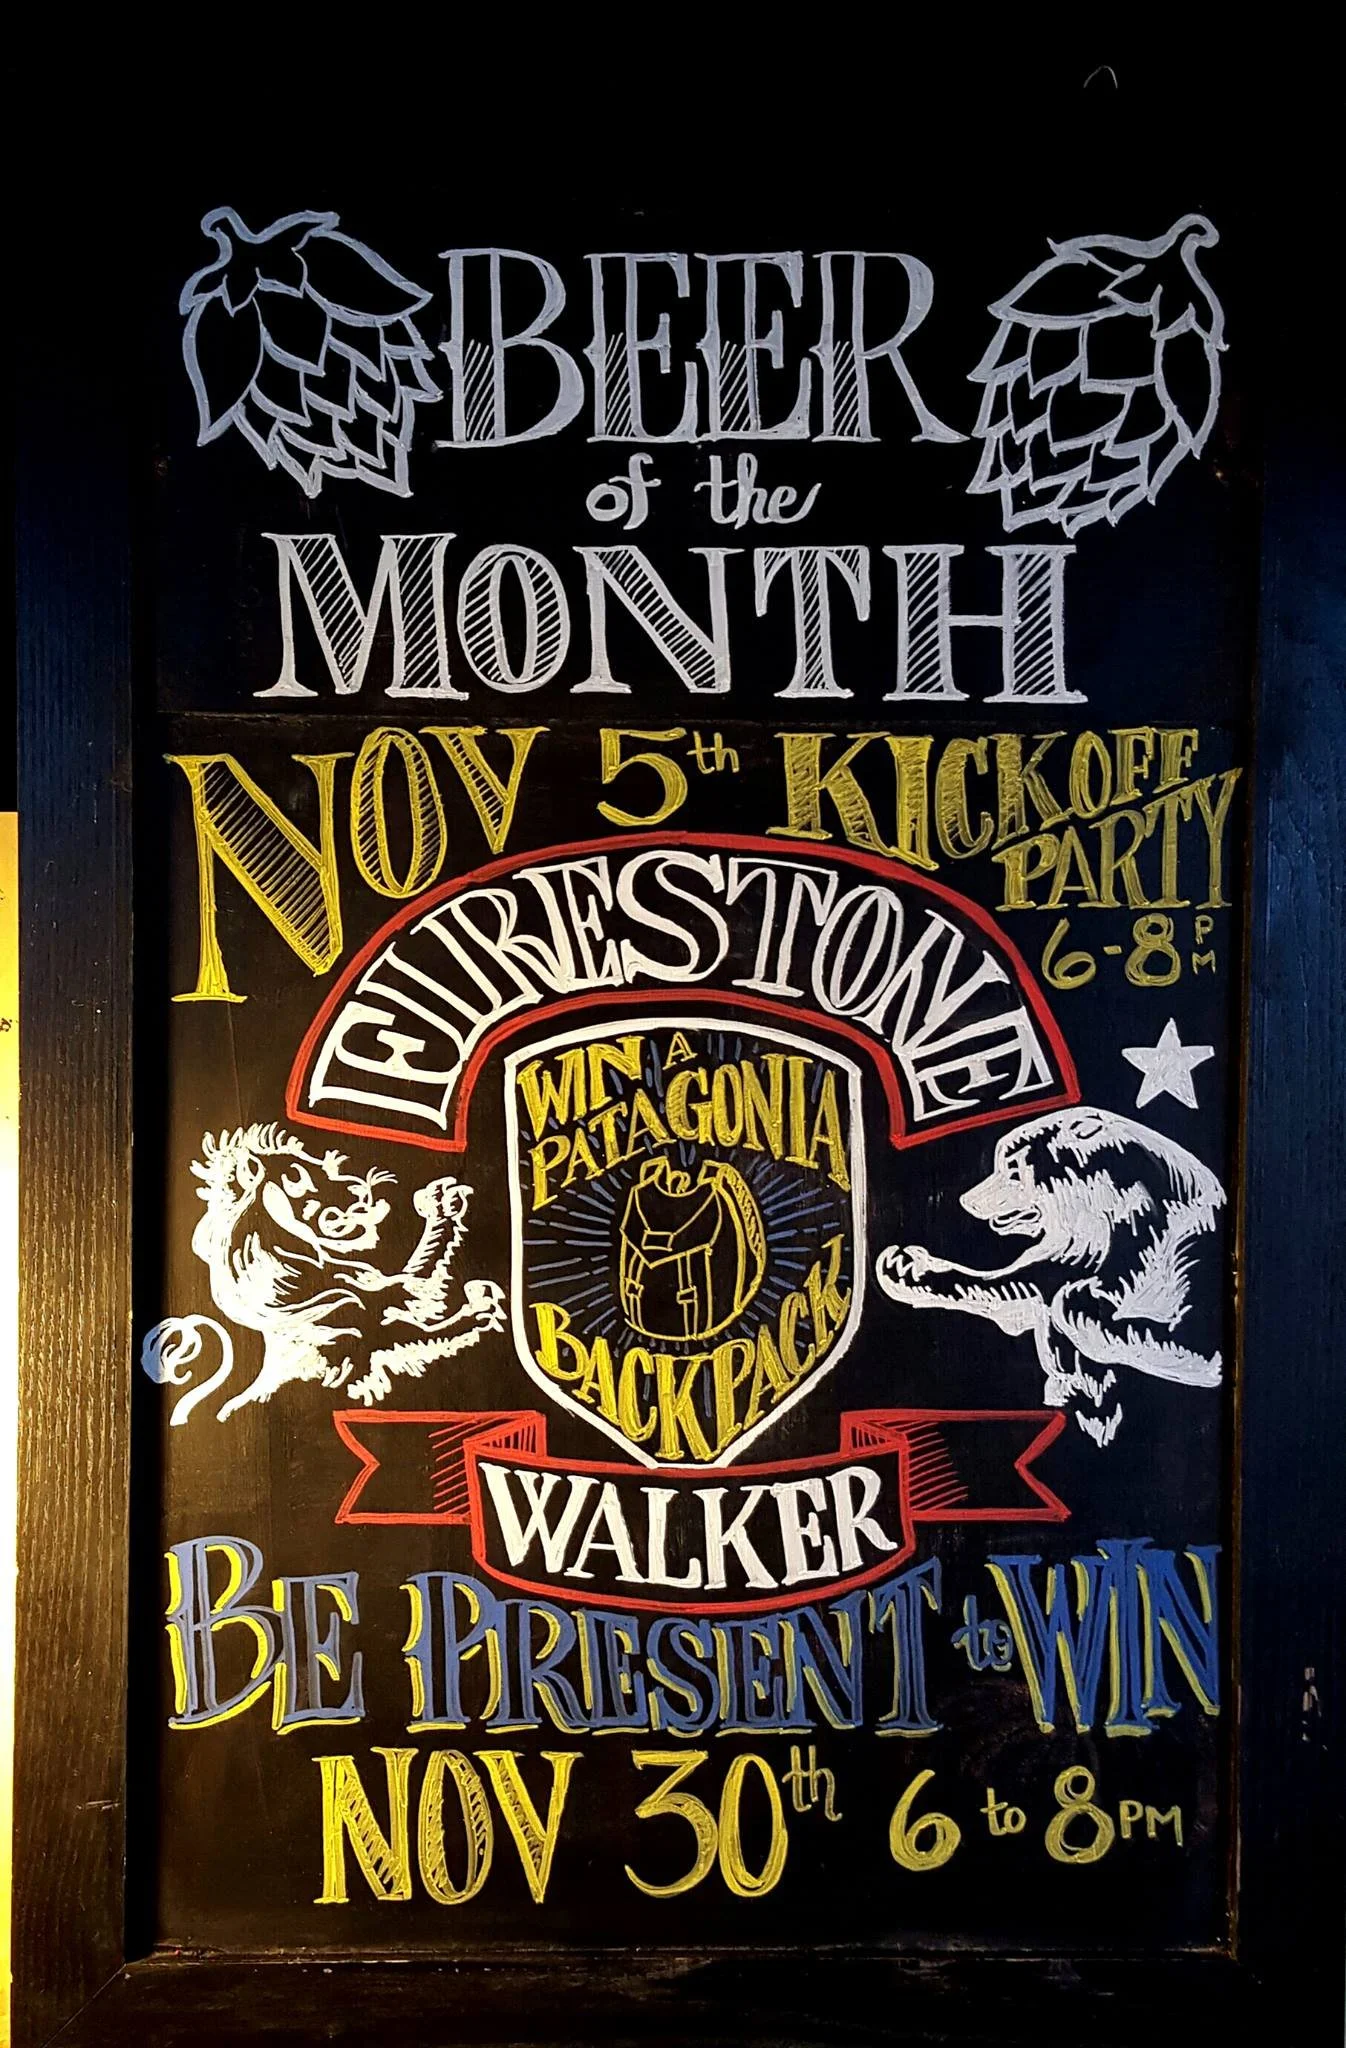 BEER
of the
MONTH
NOV 5th KICK OFF
PARTY
6-8 PM
FIRESTONE
WIN A
PATAGONIA
BACKPACK
WALKER
BE PRESENT to WIN
NOV 30th 6 to 8PM